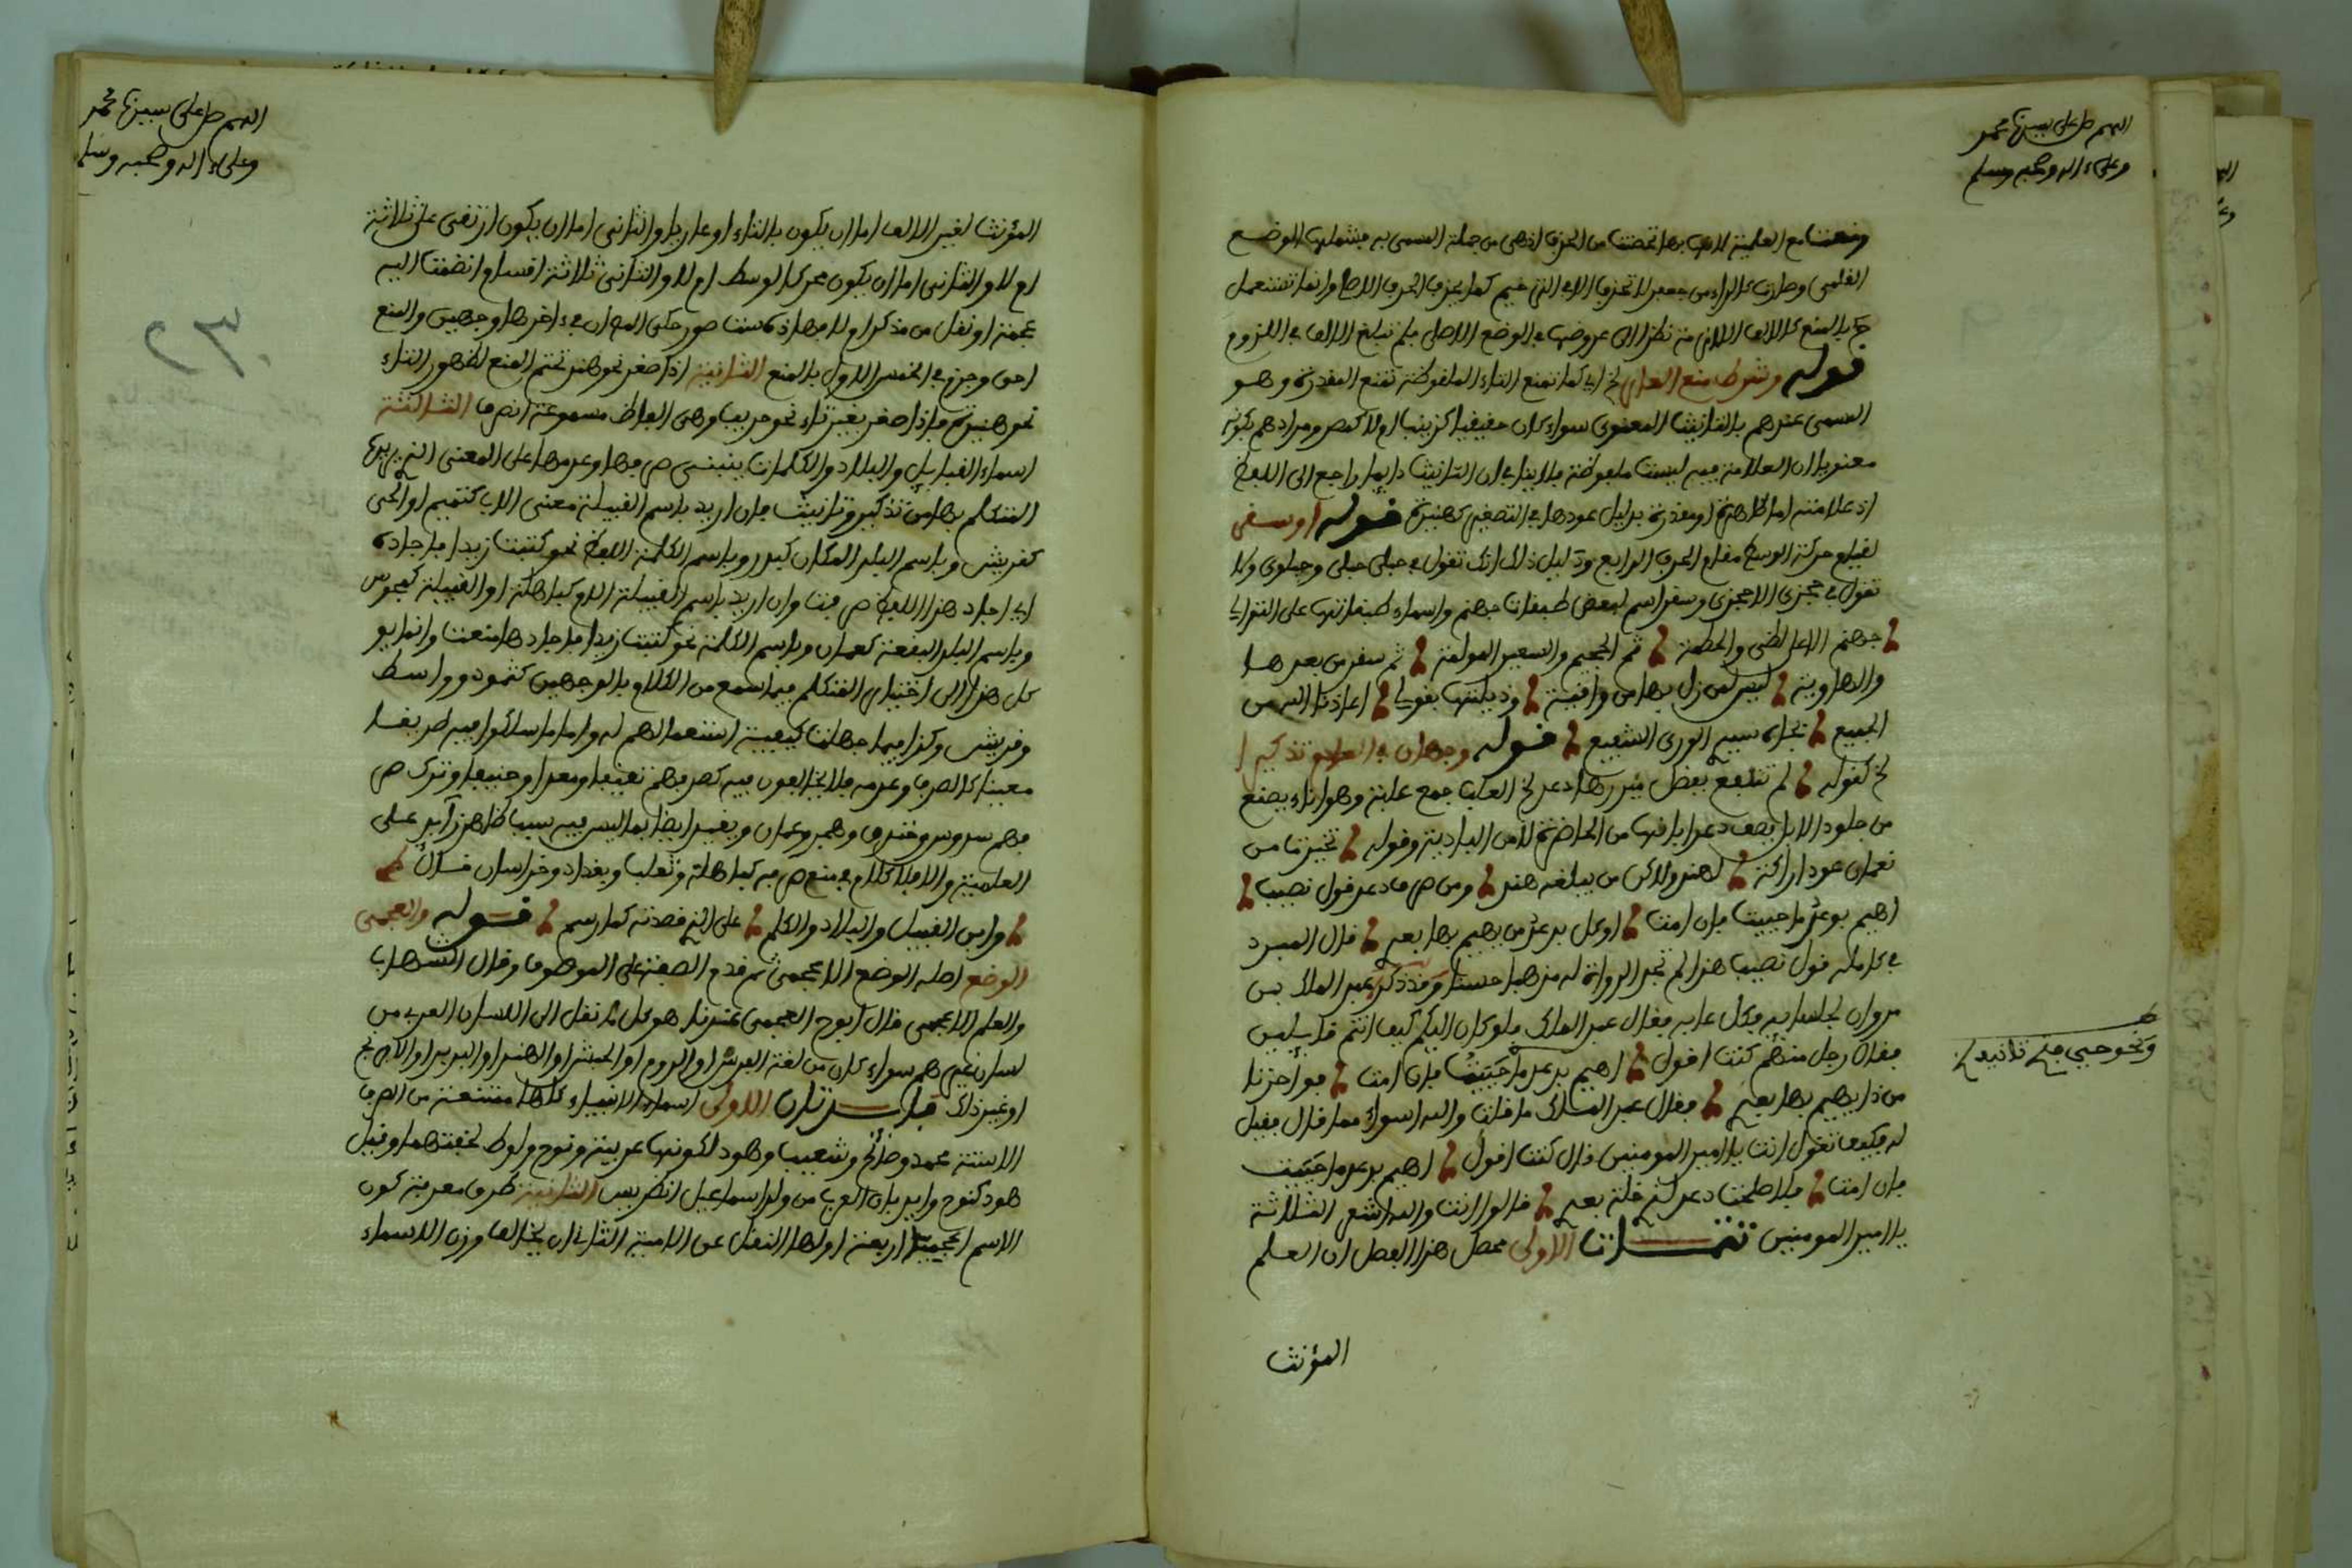 اللهم صل على سيدنا محمد
وعلى ءاله وصحبه وسلم
ومنعت مع العلمية لأنها بها تحصنت من الحذف إذ هي من جملة المسمى به فيشملها الوضع
العلمي وصارت كالراء من جعفر لا تحذف إلا في الترخيم كما يحذف الحرف الأصلي وإنما تستعمل
بالمنع كالألف اللازمة نظرا إلى عروضها في الوضع الأصلي فلم تبلغ الألف في اللزوم
قوله وشرط منع العار الخ أي كما تمنع التاء الملفوظة تمنع المقدرة وهو
المسمى عندهم بالتأنيث المعنوي سواء كان حقيقيا كزينب أم لا كمصر ومرادهم بكونه
معنويا أن العلامة فيه ليست ملفوظة فلا ينافي أن التأنيث دائما راجع إلى اللفظ
إذ علامته إما ظاهرة أو مقدرة بدليل عودها في التصغير كهنيدة قوله أو سقر
لقيام حركة الوسط مقام الحرف الرابع ودليل ذلك أنك تقول في حبلى حبلي وحبلوي ولا
تقول في جمزى إلا جمزي وسقر اسم لبعض طبقات جهنم وأسماء طبقاتها على التوالي
جهنم الأعلى لظى والحطمة ثم الجحيم والسعير المولمة ثم سقر من بعدها
والهاوية ليس لمن زل بها من واقية وذيلتها بقولي أعاذنا الله من
الجميع بجاه سيد الورى الشفيع قوله وجهان في العادم تذكيرا
الخ كقوله لم تتلفع بفضل مئزرها دعد الخ العلب جمع علبة وهو إناء يصنع
من جلود الإبل يصف دعدا بأنها من الحاضرة لا من البادية وقوله تخيرت من
نعمان عود أراكة لهند ولاكن من يبلغه هند ومن صرف دعد قول نصيب
أهيم بدعد ما حييت فإن أمت أوكل بدعد من يهيم بها بعدي قال المبرد
في كامله قول نصيب هذا لم تجد الرواة له مذهبا حسنا وقد ذكر عبد الملك بن
مروان لجلسائه فكل عابه فقال عبد الملك فلو كان إليكم كيف أنتم قائلين
فقال رجل منهم كنت أقول أهيم بدعد ما حييت فإن أمت فواحزنا
من ذا يهيم بها بعدي فقال عبد الملك ما قلت والله أسوأ مما قال فقيل
له فكيف تقول أنت يا أمير المومنين قال كنت أقول أهيم بدعد ما حييت
فإن أمت فلا صلحت دعد لذي خلة بعدي قالوا أنت والله أشعر الثلاثة
يا أمير المومنين تتمات الأولى محصل هذا الفصل أن العلم
المؤنث
ونحو حبي
اللهم صل على سيدنا محمد
وعلى ءاله وصحبه وسلم
المؤنث لغير الألف إما أن يكون بالتاء أو عاريا والثاني إما أن يكون ارتقى على ثلاثة
أم لا والثاني إما أن يكون محرك الوسط أم لا والثاني ثلاثة أقسام انضمت إليه
عجمة أو نقل من مذكر أو لا فهاذه ست صور حكى المص أن في ءاخرها وجهين والمنع
أحق وجزم في الخمس الأول بالمنع الثانية إذا صغر نحو هند تحتم المنع لظهور التاء
نحو هنيدة فإذا صغر بغير تاء نحو حريب وهي ألفاظ مسموعة انصرف الثالثة
أسماء القبايل والبلاد والكلمات ينبني صرفها وعدمها على المعنى الذي يريده
المتكلم بها من تذكير وتأنيث فإن أريد باسم القبيلة معنى الأب كتميم أو الحي
كقريش وباسم البلد المكان كبدر وباسم الكلمة اللفظ نحو كتبت زيدا فأجاده
أي أجاد هذا اللفظ صرفت وإن أريد باسم القبيلة الأم كباهلة أو القبيلة كمجوس
وباسم البلد البقعة كعمان وباسم الكلمة نحو كتبت زيدا فأجادها منعت وإنما يو
كل هذا إلى اختيار المتكلم فيما سمع من الكلام بالوجهين كثمود وواسط
وقريش وكذا فيما جهلت كيفية استعمالهم له وأما ما سلكوا فيه طريقا
معينا كالصرف وعدمه فلا يخالفون فيه كصرفهم ثقيفا ومعدا وحنينا وترك صر
فهم سدوس وخندف وهجر وعمان ويقيد أيضا بما ليس فيه سبب ظاهر زائد على
العلمية وإلا فلا كلام في منع صرفه كباهلة وتغلب وبغداد وخراسان قال
وابن القبيل والبلاد والكلم على الذي قصدته كما رسم قوله والعجمي
الوضع أصله الوضع الأعجمي ثم قدم الصفة على الموصوف وقال الشهاب
والعلم الأعجمي قال أبو ح العجمي عندنا هو كل ما نقل إلى اللسان العربي من
لسان غيرهم سواء كان من لغة الفرس أو الروم أو الحبشة أو الهند أو البربر أو الافرنج
أو غير ذلك فائدتان الأولى أسماء الأنبياء كلها ممتنعة من الصرف
إلا ستة محمد وصالح وشعيب وهود لكونها عربية ونوح ولوط لخفتهما وقيل
هود كنوح وأيد بأن العرب من ولد إسماعيل انظر يس الثانية طرق معرفة كون
الاسم أعجميا أربعة أولها النقل عن الأئمة الثاني أن يخالف وزن الأسماء